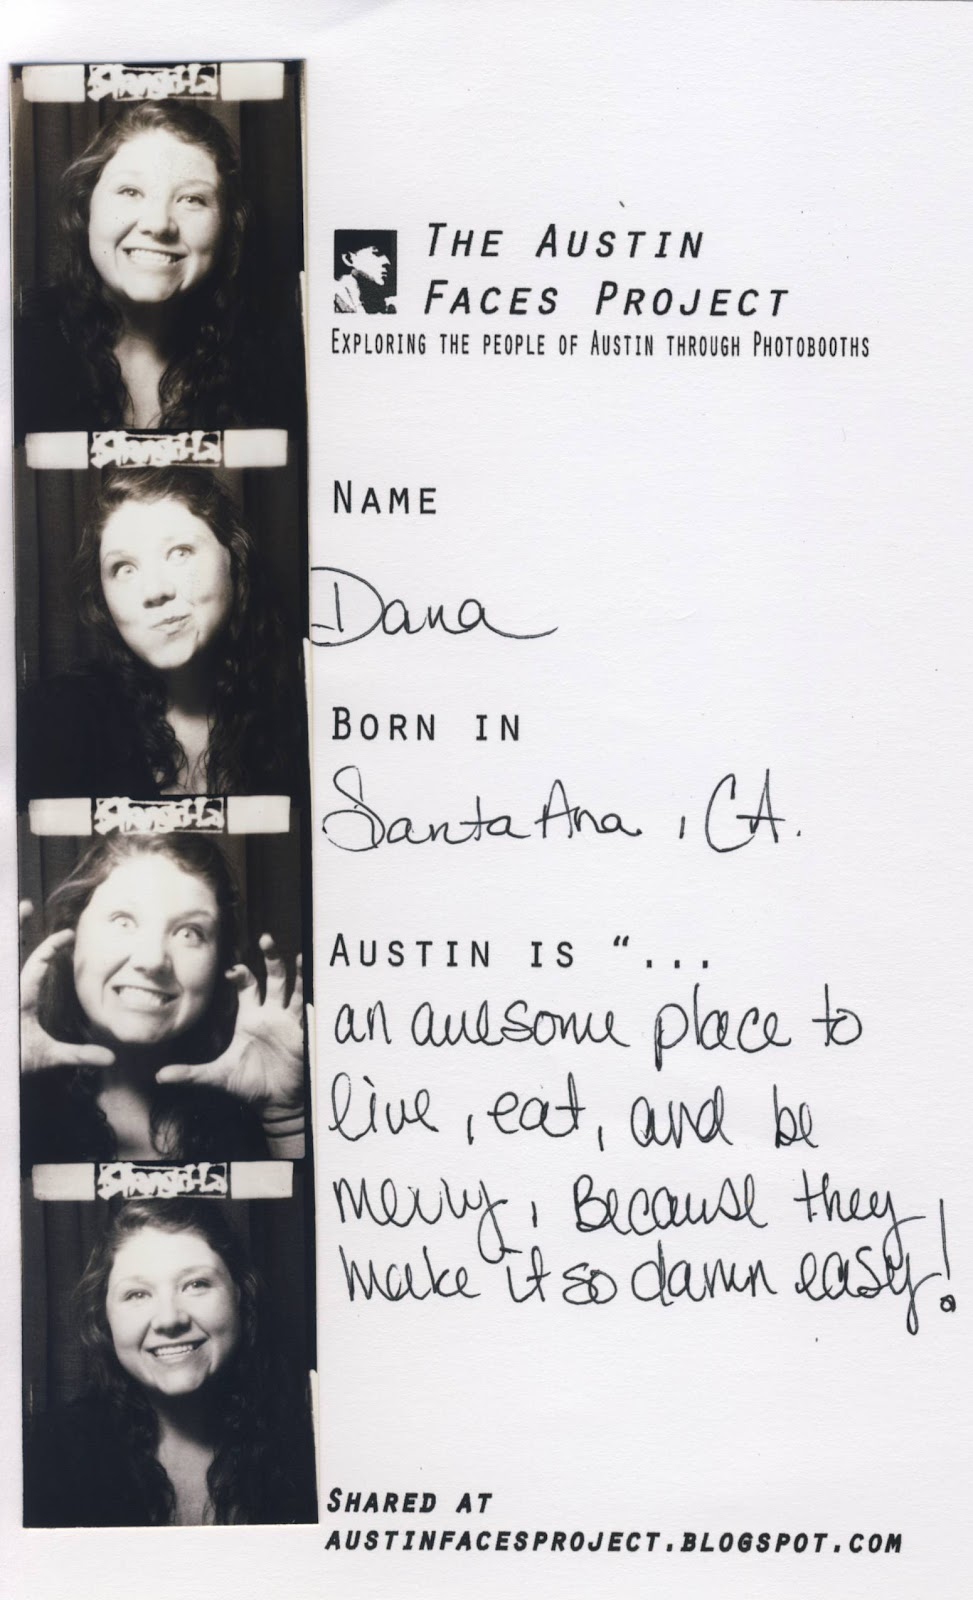 Shangri-La
THE AUSTIN
FACES PROJECT
EXPLORING THE PEOPLE OF AUSTIN THROUGH PHOTOBOOTHS
Shangri-La
NAME
Dana
BORN IN
Shangri-La
Santa Ana, CA.
AUSTIN IS “...
an awesome place to
live, eat, and be
merry, Because they
make it so damn easy!
Shangri-La
SHARED AT
AUSTINFACESPROJECT.BLOGSPOT.COM